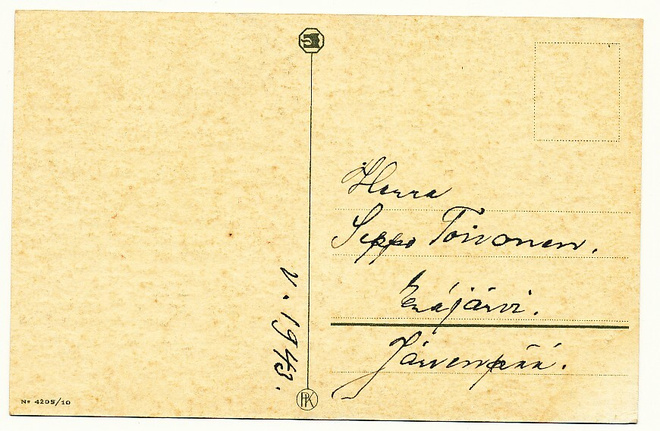 Herra
Seppo Toivonen.
Eräjärvi.
Järvenpää.
v. 1943.
PK
No 4205/10